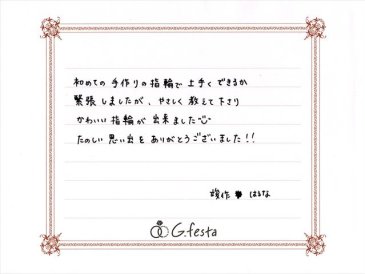 初めての手作りの指輪で上手くできるか
緊張しましたが、やさしく教えて下さり
かわいい指輪が出来ました
たのしい思い出をありがとうございました!!
竣作 はるな
G.festa